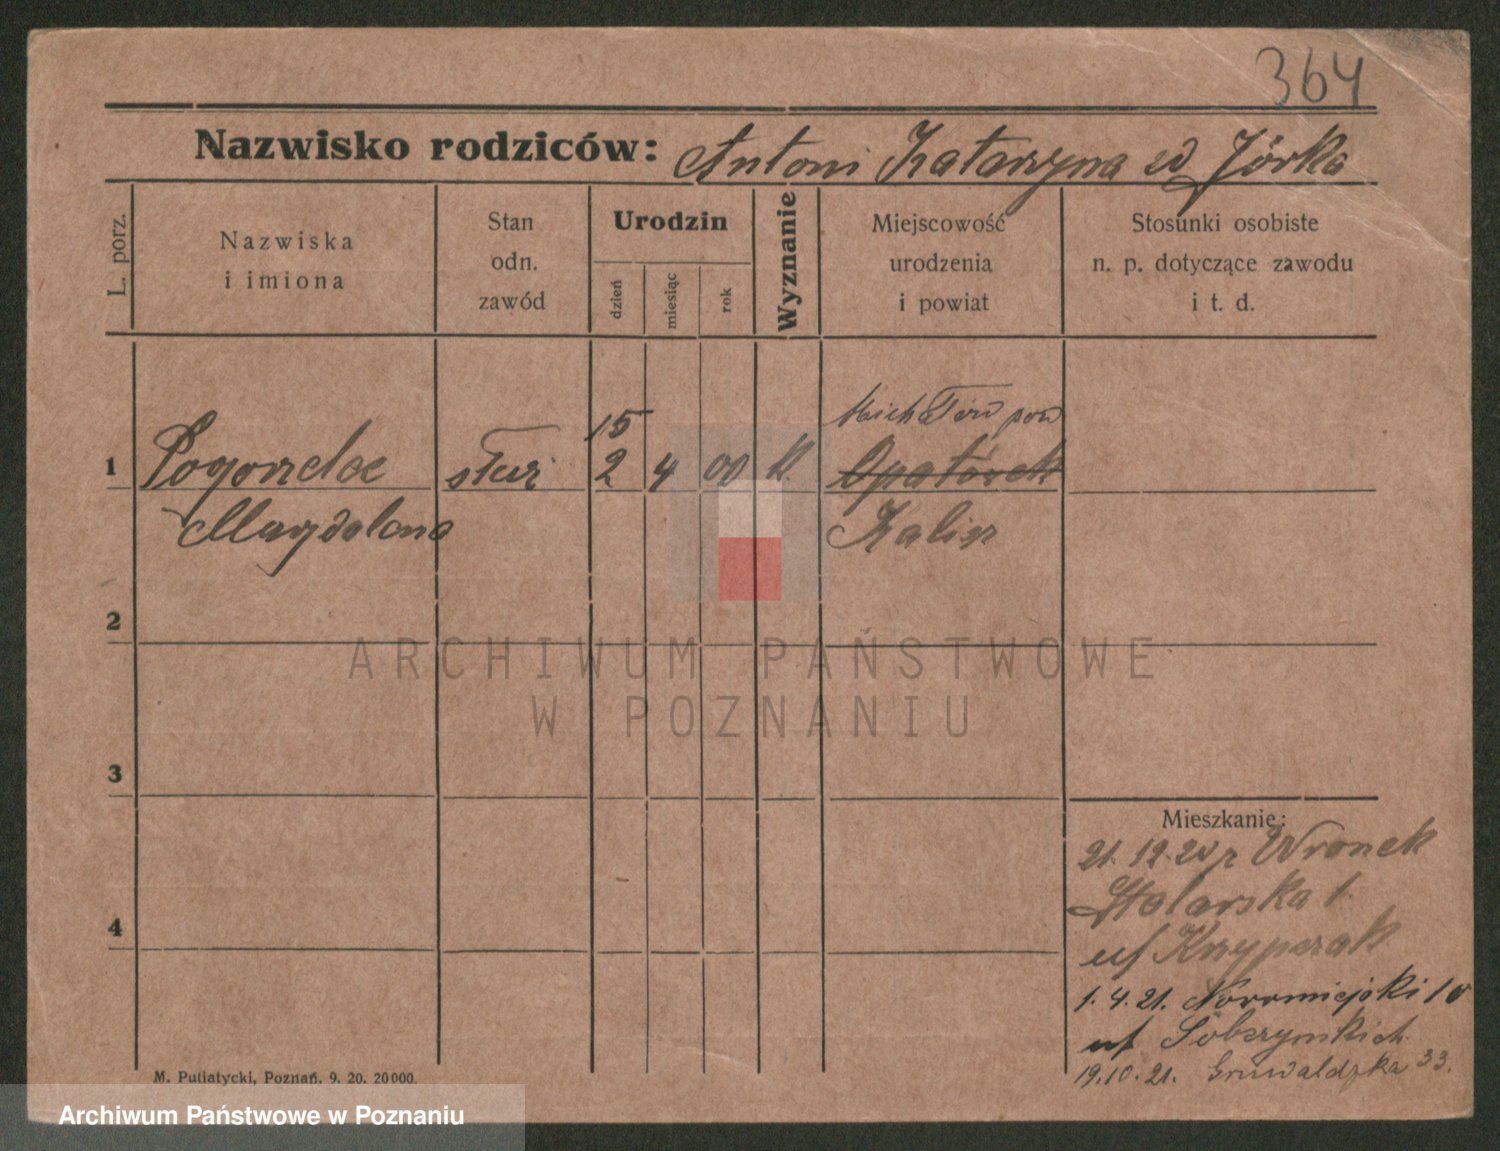 364
Nazwisko rodziców: Antoni Katarzyna
L. porz.
Nazwiska
i imiona
Stan
odn.
zawód
Urodzin
dzień
miesiąc
rok
Wyznanie
Miejscowość
urodzenia
i powiat
Stosunki osobiste
n. p. dotyczące zawodu
i t. d.
15
pow
1 służ 2 4 00 k. Opatówek
Magdalena Kalisz
2
ARCHIWUM PAŃSTWOWE
W POZNANIU
3
Mieszkanie:
21.12.20 z Wronek
Stolarska 1.
4
1.4.21. 10
19.10.21. Grunwaldzka 33.
M. Putiatycki, Poznań. 9. 20. 20000.
Archiwum Państwowe w Poznaniu